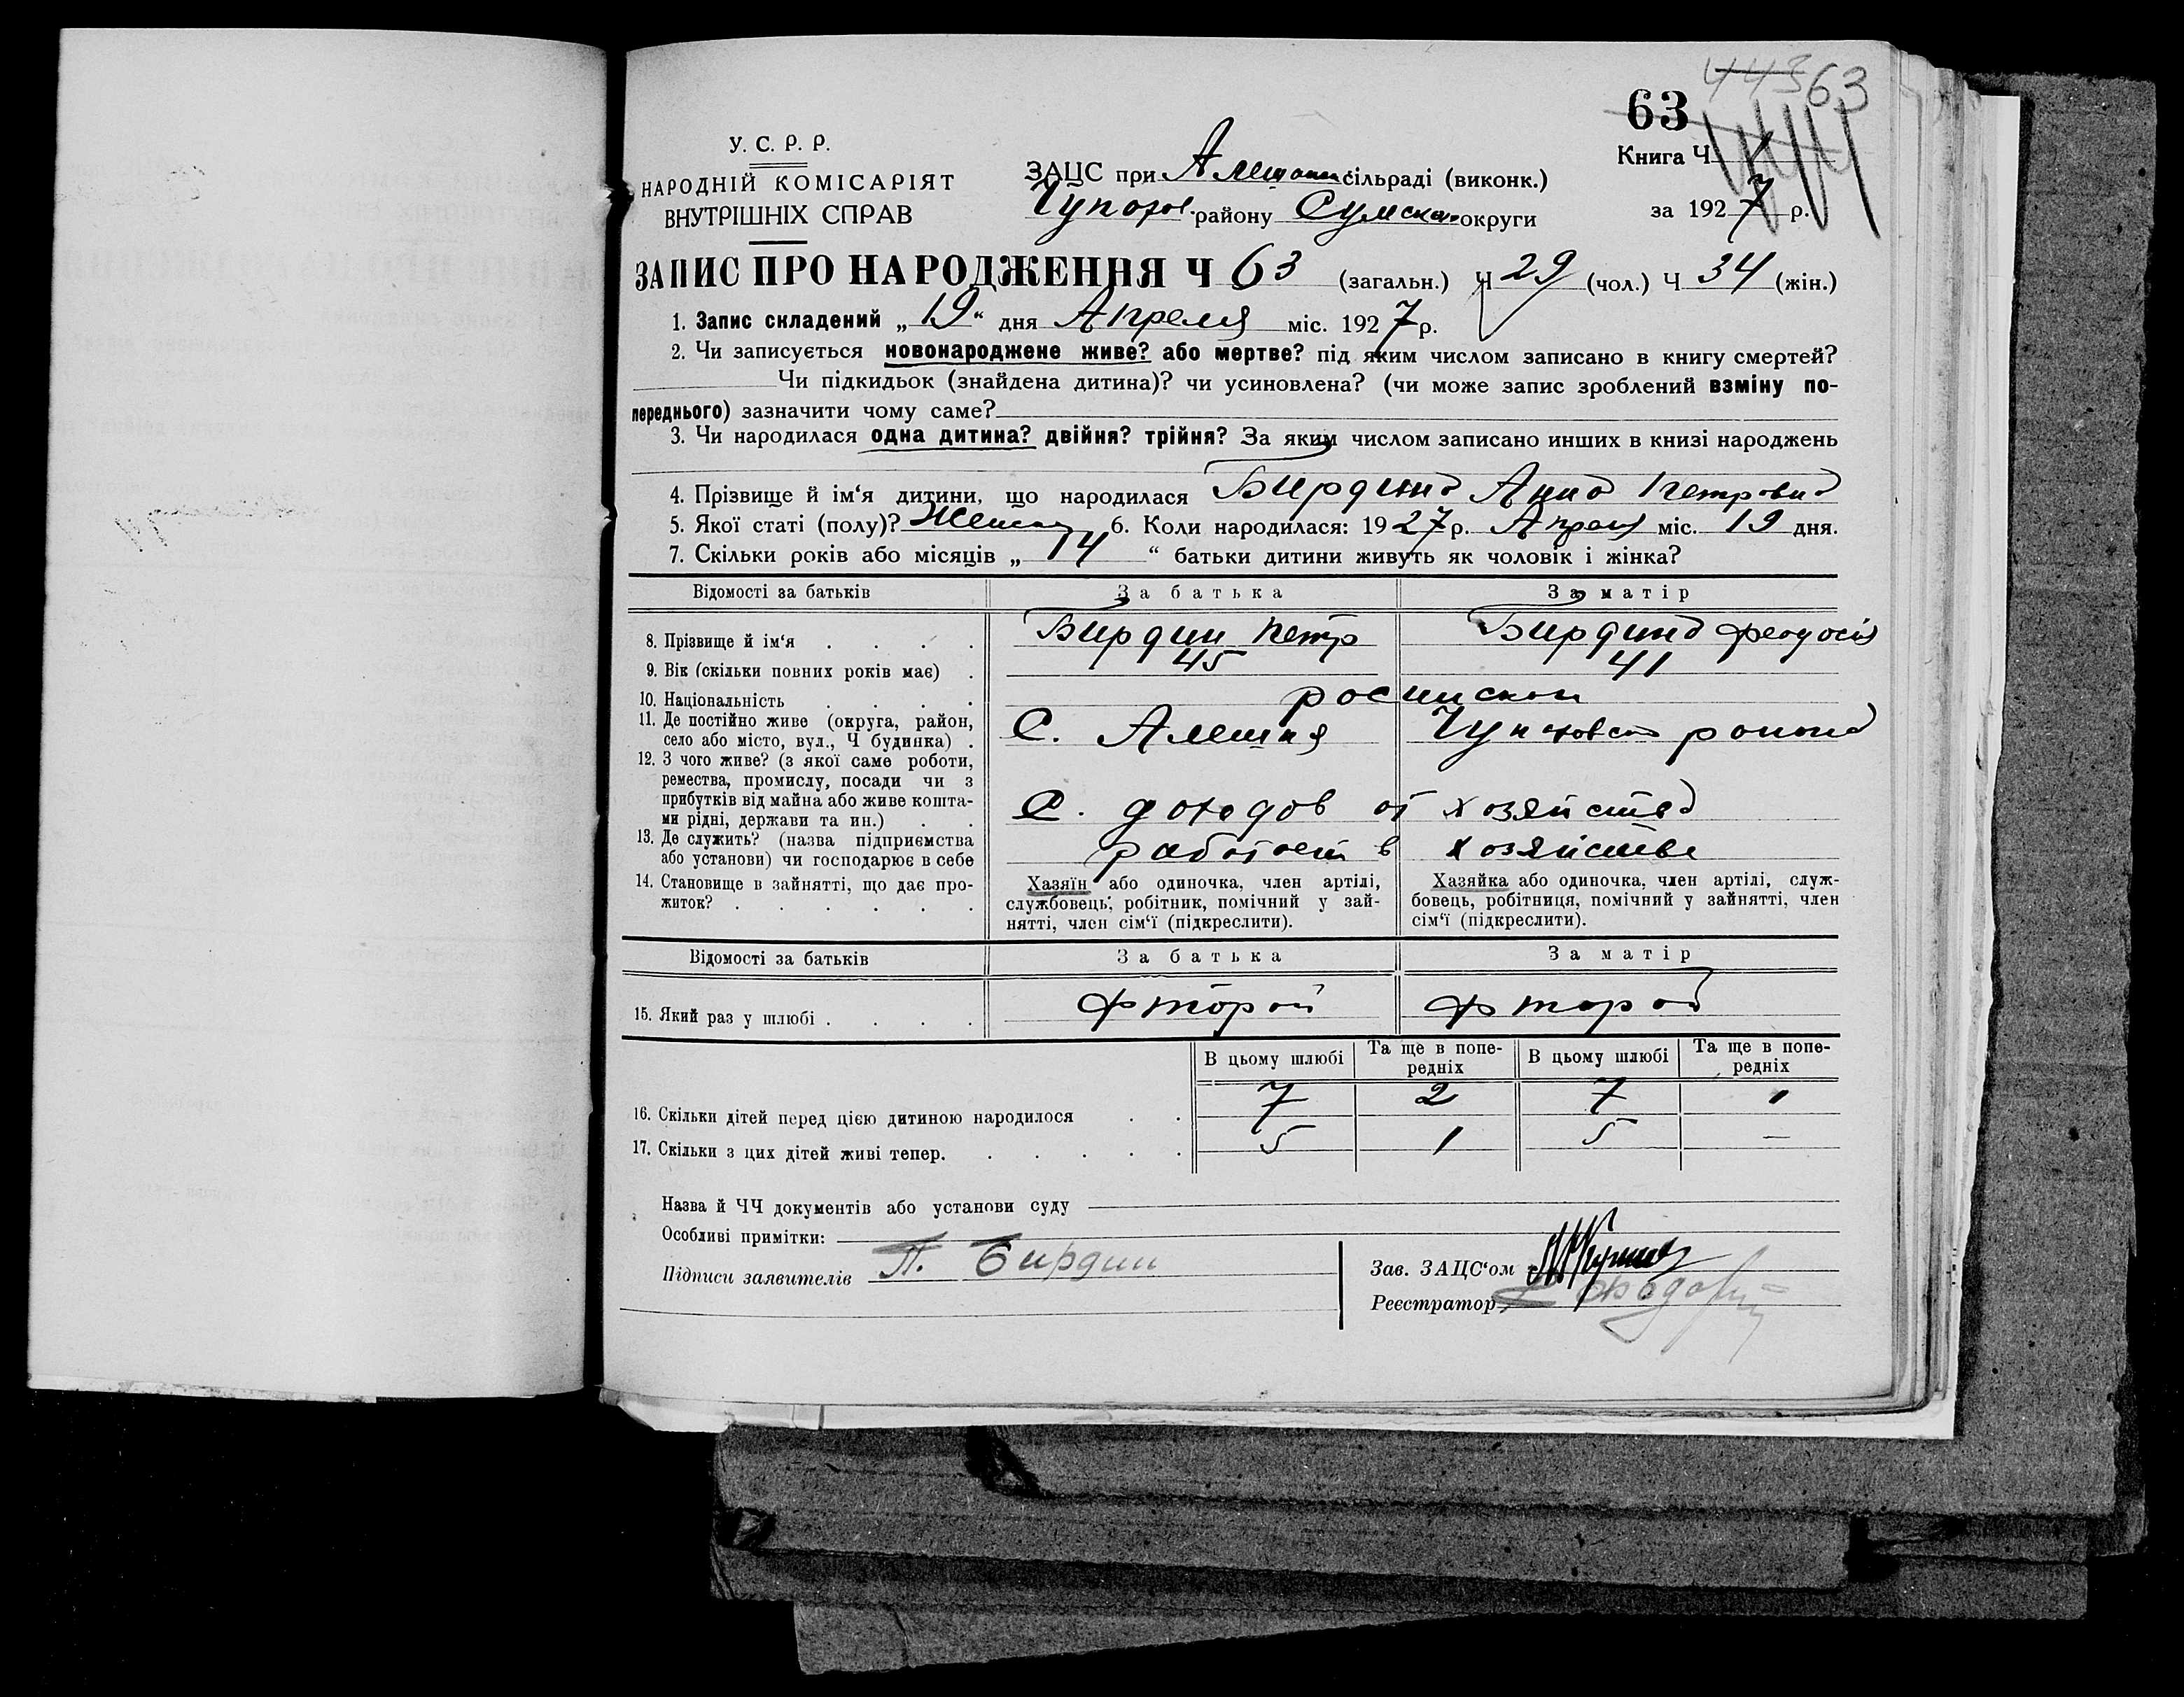 443 63
63
У. С. Р. Р.
Книга Ч
НАРОДНІЙ КОМІСАРІЯТ
ЗАЦС при сільраді (виконк.)
ВНУТРІШНІХ СПРАВ
району округи
за 1927 р.
ЗАПИС ПРО НАРОДЖЕННЯ Ч 63 (загальн.) Ч 29 (чол.) Ч 34 (жін.)
1. Запис складений „ 19 “ дня Апреля міс. 1927 р.
2. Чи записується новонароджене живе? або мертве? під яким числом записано в книгу смертей?
Чи підкидьок (знайдена дитина)? чи усиновлена? (чи може запис зроблений взміну по-
переднього) зазначити чому саме?
3. Чи народилася одна дитина? двійня? трійня? За яким числом записано инших в книзі народжень
4. Прізвище й ім‘я дитини, що народилася Бирдина Анна Петровна
5. Якої статі (полу)? 6. Коли народилася: 1927 р. Апреля міс. 19 дня.
7. Скільки років або місяців „ 14 “ батьки дитини живуть як чоловік і жінка?
Відомості за батьків За батька За матір
8. Прізвище й ім‘я . . . . Бирдин Петр Бирдина Феодосия
9. Вік (скільки повних років має) . 45 41
10. Національність . . . .
11. Де постійно живе (округа, район,
село або місто, вул., Ч будинка) . С. Алешня
12. З чого живе? (з якої саме роботи,
ремества, промислу, посади чи з
прибутків від майна або живе кошта-
ми рідні, держави та ин.) . . С. доходов от хозяйства
13. Де служить? (назва підприємства
або установи) чи господарює в себе работает в хозяйстве
14. Становище в зайнятті, що дає про-
житок? . . . . . .
Хазяїн або одиночка, член артілі,
службовець, робітник, помічний у зай-
нятті, член сім‘ї (підкреслити).
Хазяйка або одиночка, член артілі, служ-
бовець, робітниця, помічний у зайнятті, член
сім‘ї (підкреслити).
Відомості за батьків За батька За матір
15. Який раз у шлюбі . . . . Фторой Фторой
В цьому шлюбі Та ще в попе-
редніх В цьому шлюбі Та ще в попе-
редніх
16. Скільки дітей перед цією дитиною народилося . . 7 2 7 1
17. Скільки з цих дітей живі тепер. . . . . . 5 1 5 —
Назва й ЧЧ документів або установи суду
Особливі примітки:
Підписи заявителів П. Бирдин
Зав. ЗАЦС‘ом
Реєстратор